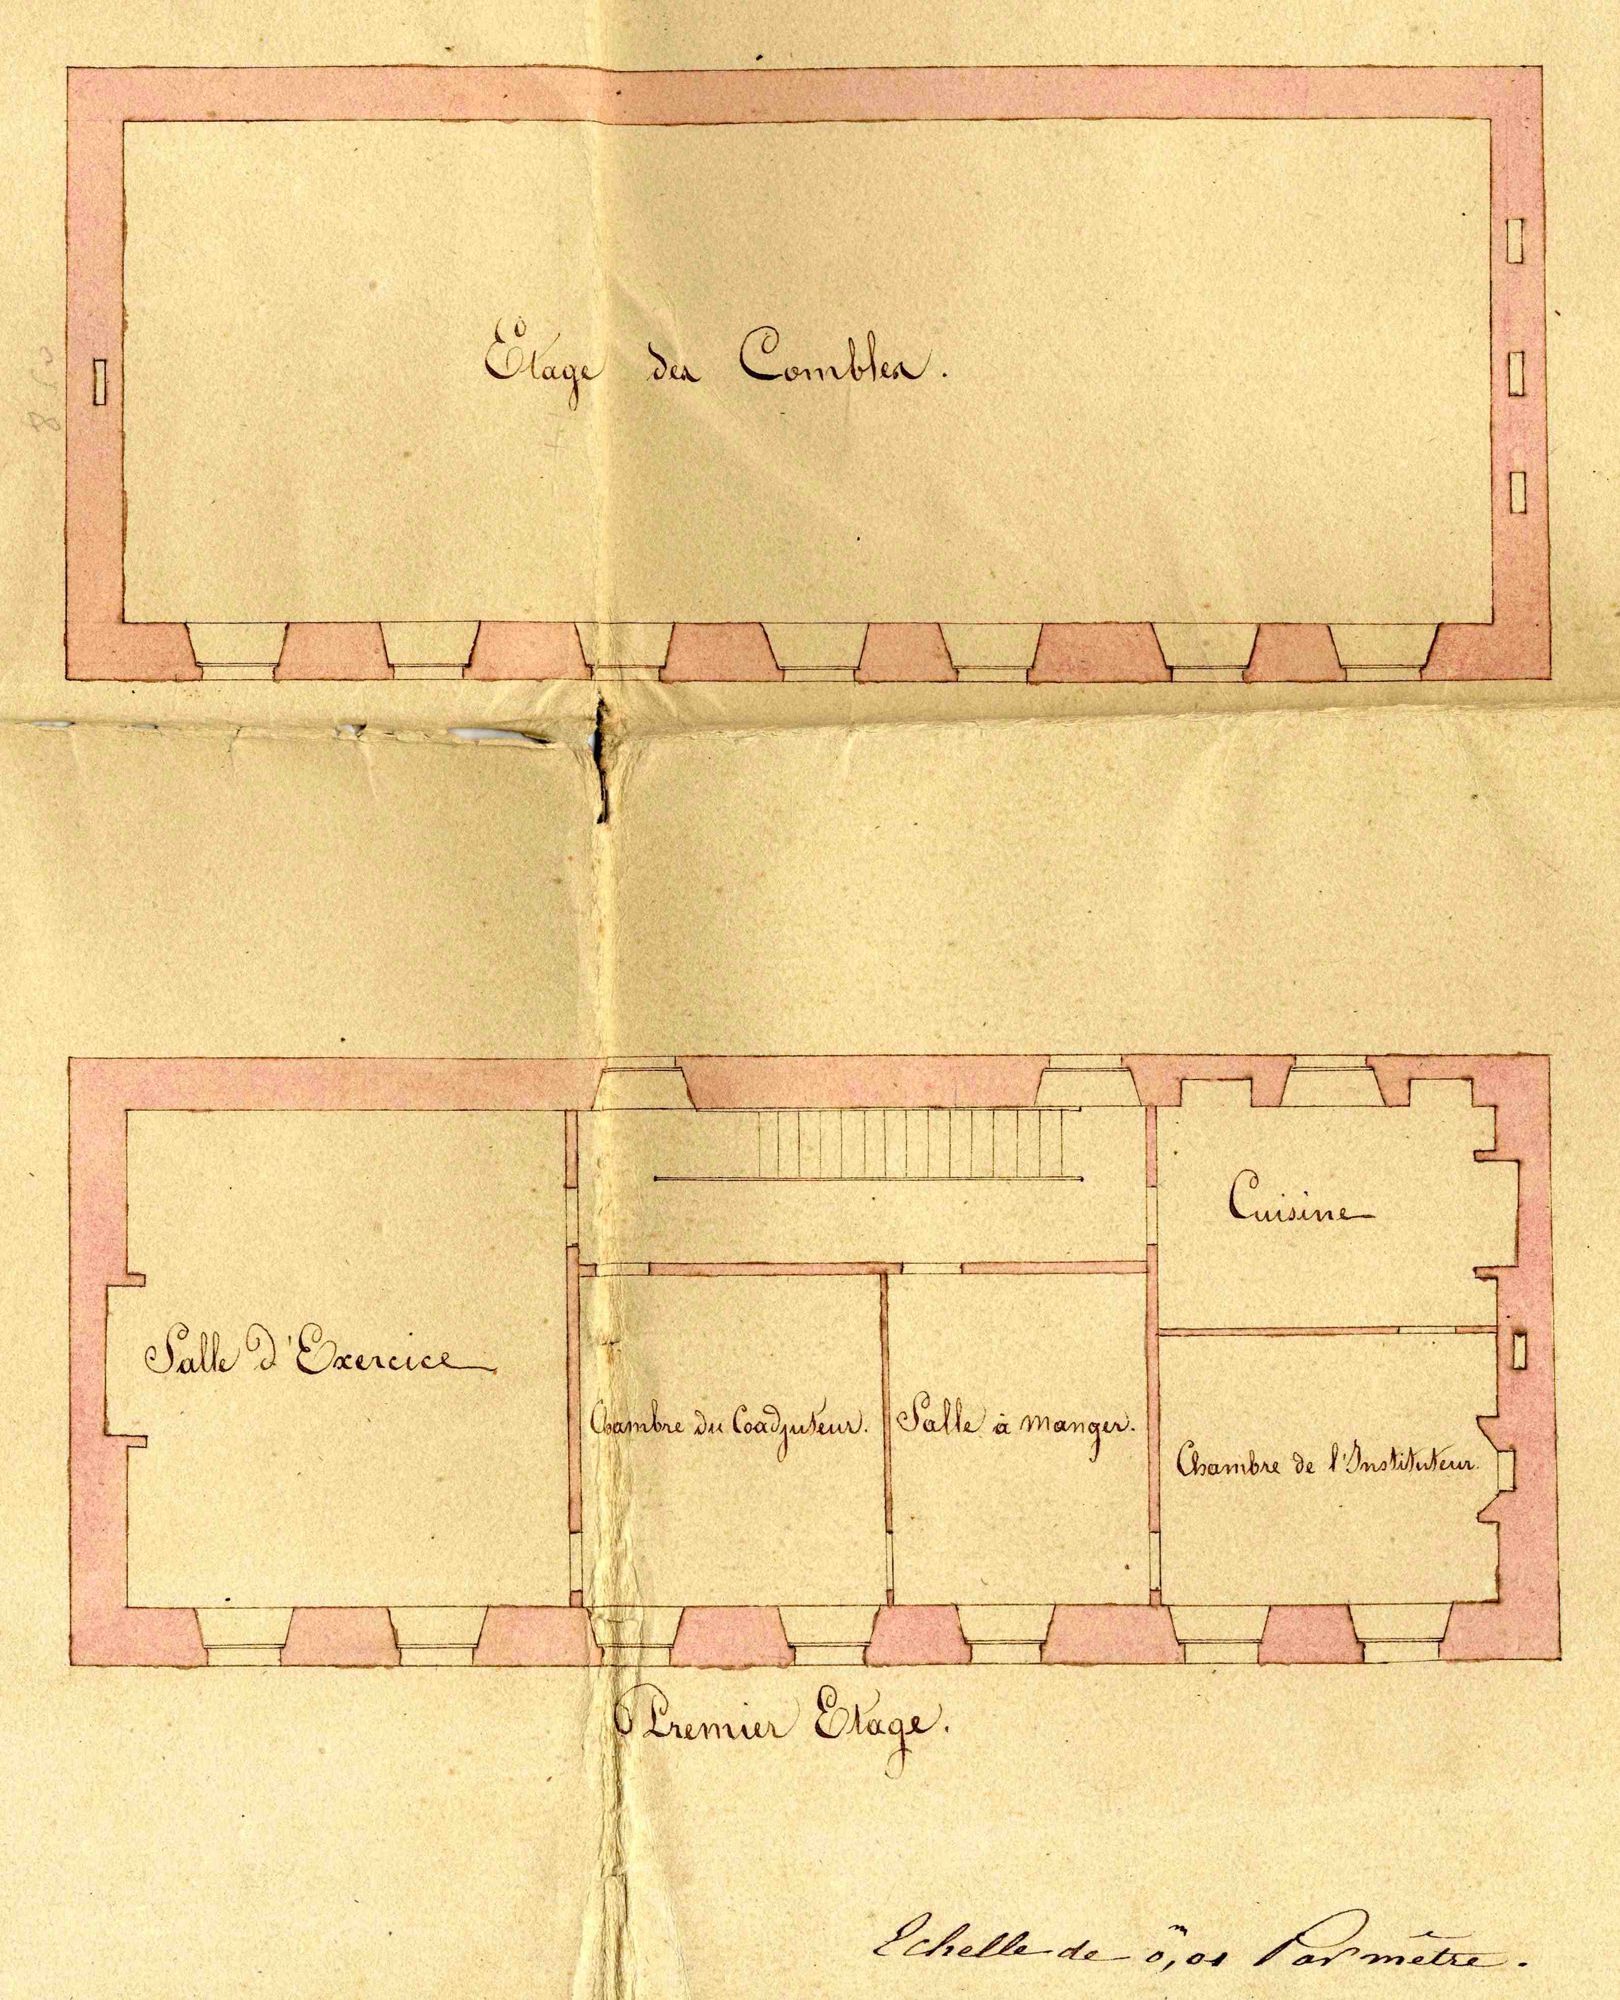 Etage des Combles.
Cuisine
Salle d'Exercice
Chambre du Coadjuteur.
Salle à manger.
Chambre de l'Instituteur.
Premier Etage.
Echelle de 0,m01 Par mètre.